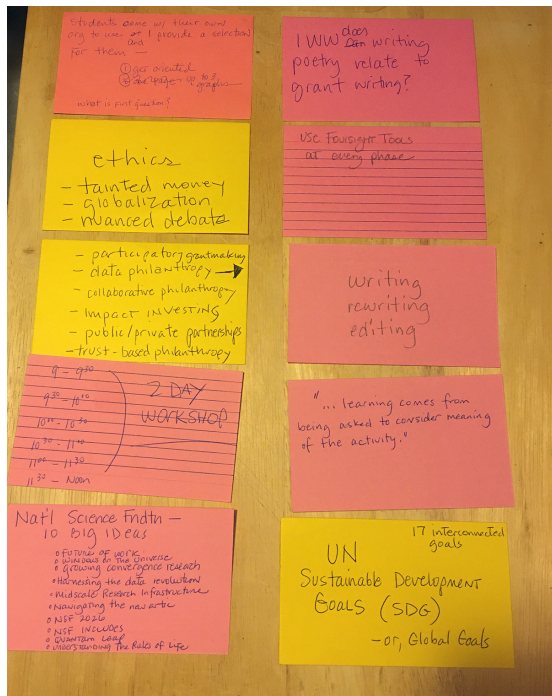 Students come w/ their own
org to use or I provide a selection
and
for them —
① get oriented
② one pager up to 3
graphs
what is first question?
ethics
- tainted money
- globalization
- nuanced debate
- participatory grantmaking
- data philanthropy →
- collaborative philanthropy
- impact INVESTING
- public/private partnerships
- trust-based philanthropy
9 - 9³⁰
9³⁰ - 10⁰⁰
10⁰⁰ - 10³⁰
10³⁰ - 11⁰⁰
11⁰⁰ - 11³⁰
11³⁰ - Noon
2 DAY
WORKSHOP
Nat'l Science Fndtn —
10 BIG IDeas
• Future of work
• Windows on the Universe
• Growing convergence research
• Harnessing the data revolution
• Midscale Research Infrastructure
• Navigating the new artic
• NSF 2026
• NSF INCLUDES
• QUANTUM Leap
• Understanding the Rules of Life
does
IWW can writing
poetry relate to
grant writing?
USE Foursight Tools
at every phase
writing
rewriting
editing
"... learning comes from
being asked to consider meaning
of the activity."
17 interconnected
goals
UN
Sustainable Development
Goals (SDG)
- or, Global Goals